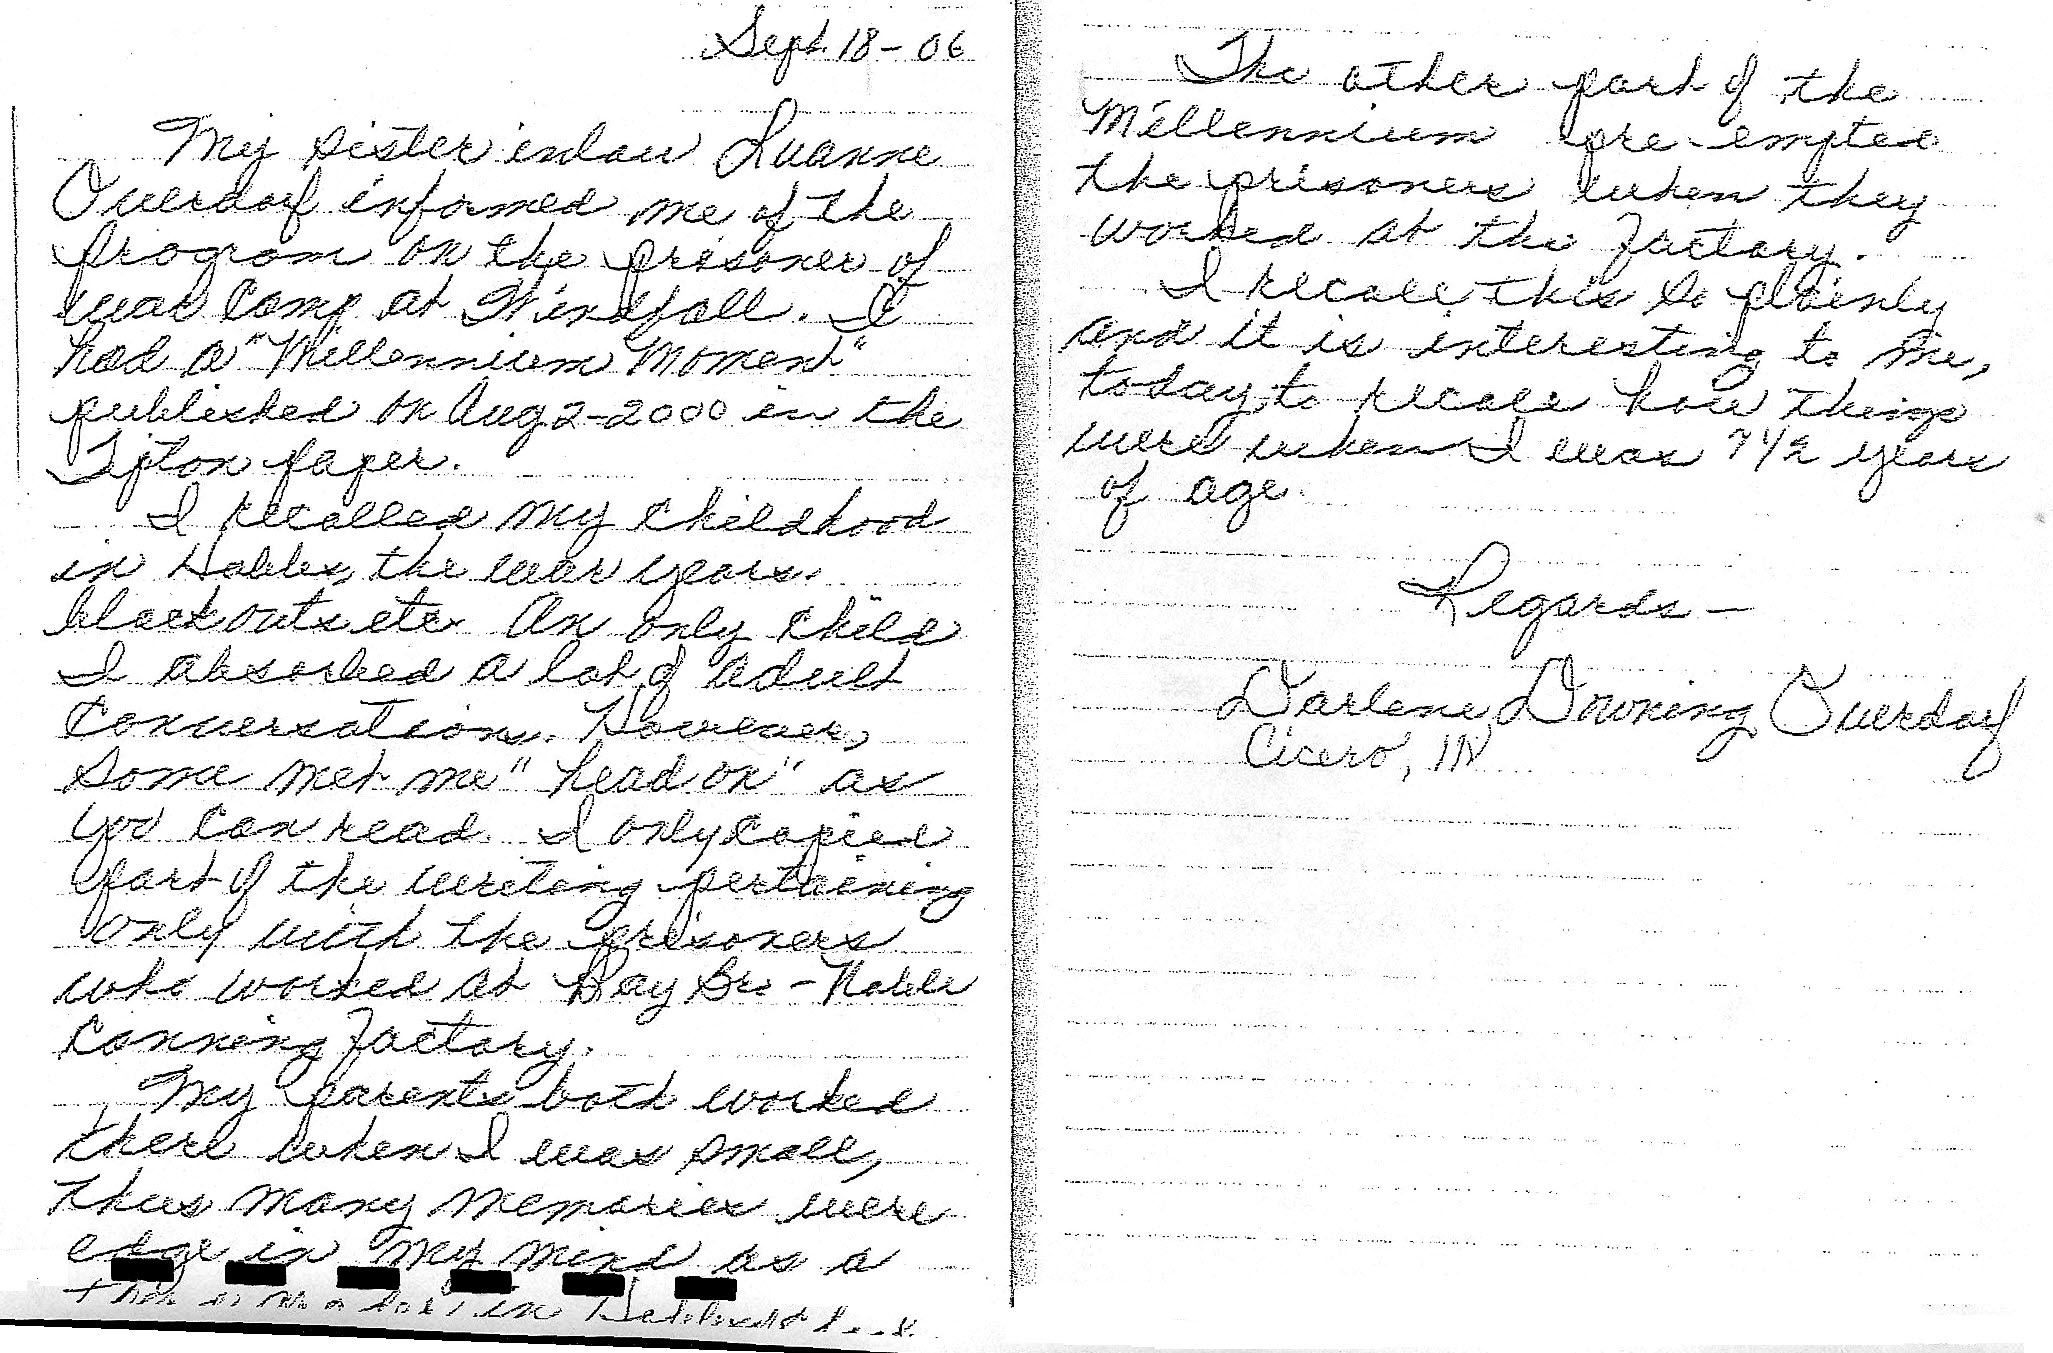 Sept. 18-06
My sister inlaw Luanne
Overdorf informed me of the
program on the prisoner of
war camp at Windfall. I
had a "Millennium Moment"
published on Aug 2-2000 in the
Tipton paper.
I recalled my childhood
in Hobbs, the war years.
blackouts etc. An only child
I absorbed a lot of adult
conversations. However,
some met me "head on" as
you can read. I only copied
part of the writing pertaining
only with the prisoners
who worked at Ray Bro-Noble
Canning Factory.
My parents both worked
there when I was small,
thus many memories were
edge in my mind as a
in
The other part of the
Millennium pre-empted
the prisoners when they
worked at the factory.
I recall this so plainly
and it is interesting to me,
today, to recall how things
were when I was 7 1/2 years
of age.
Regards-
Darlene Downing Overdorf
Cicero, IN